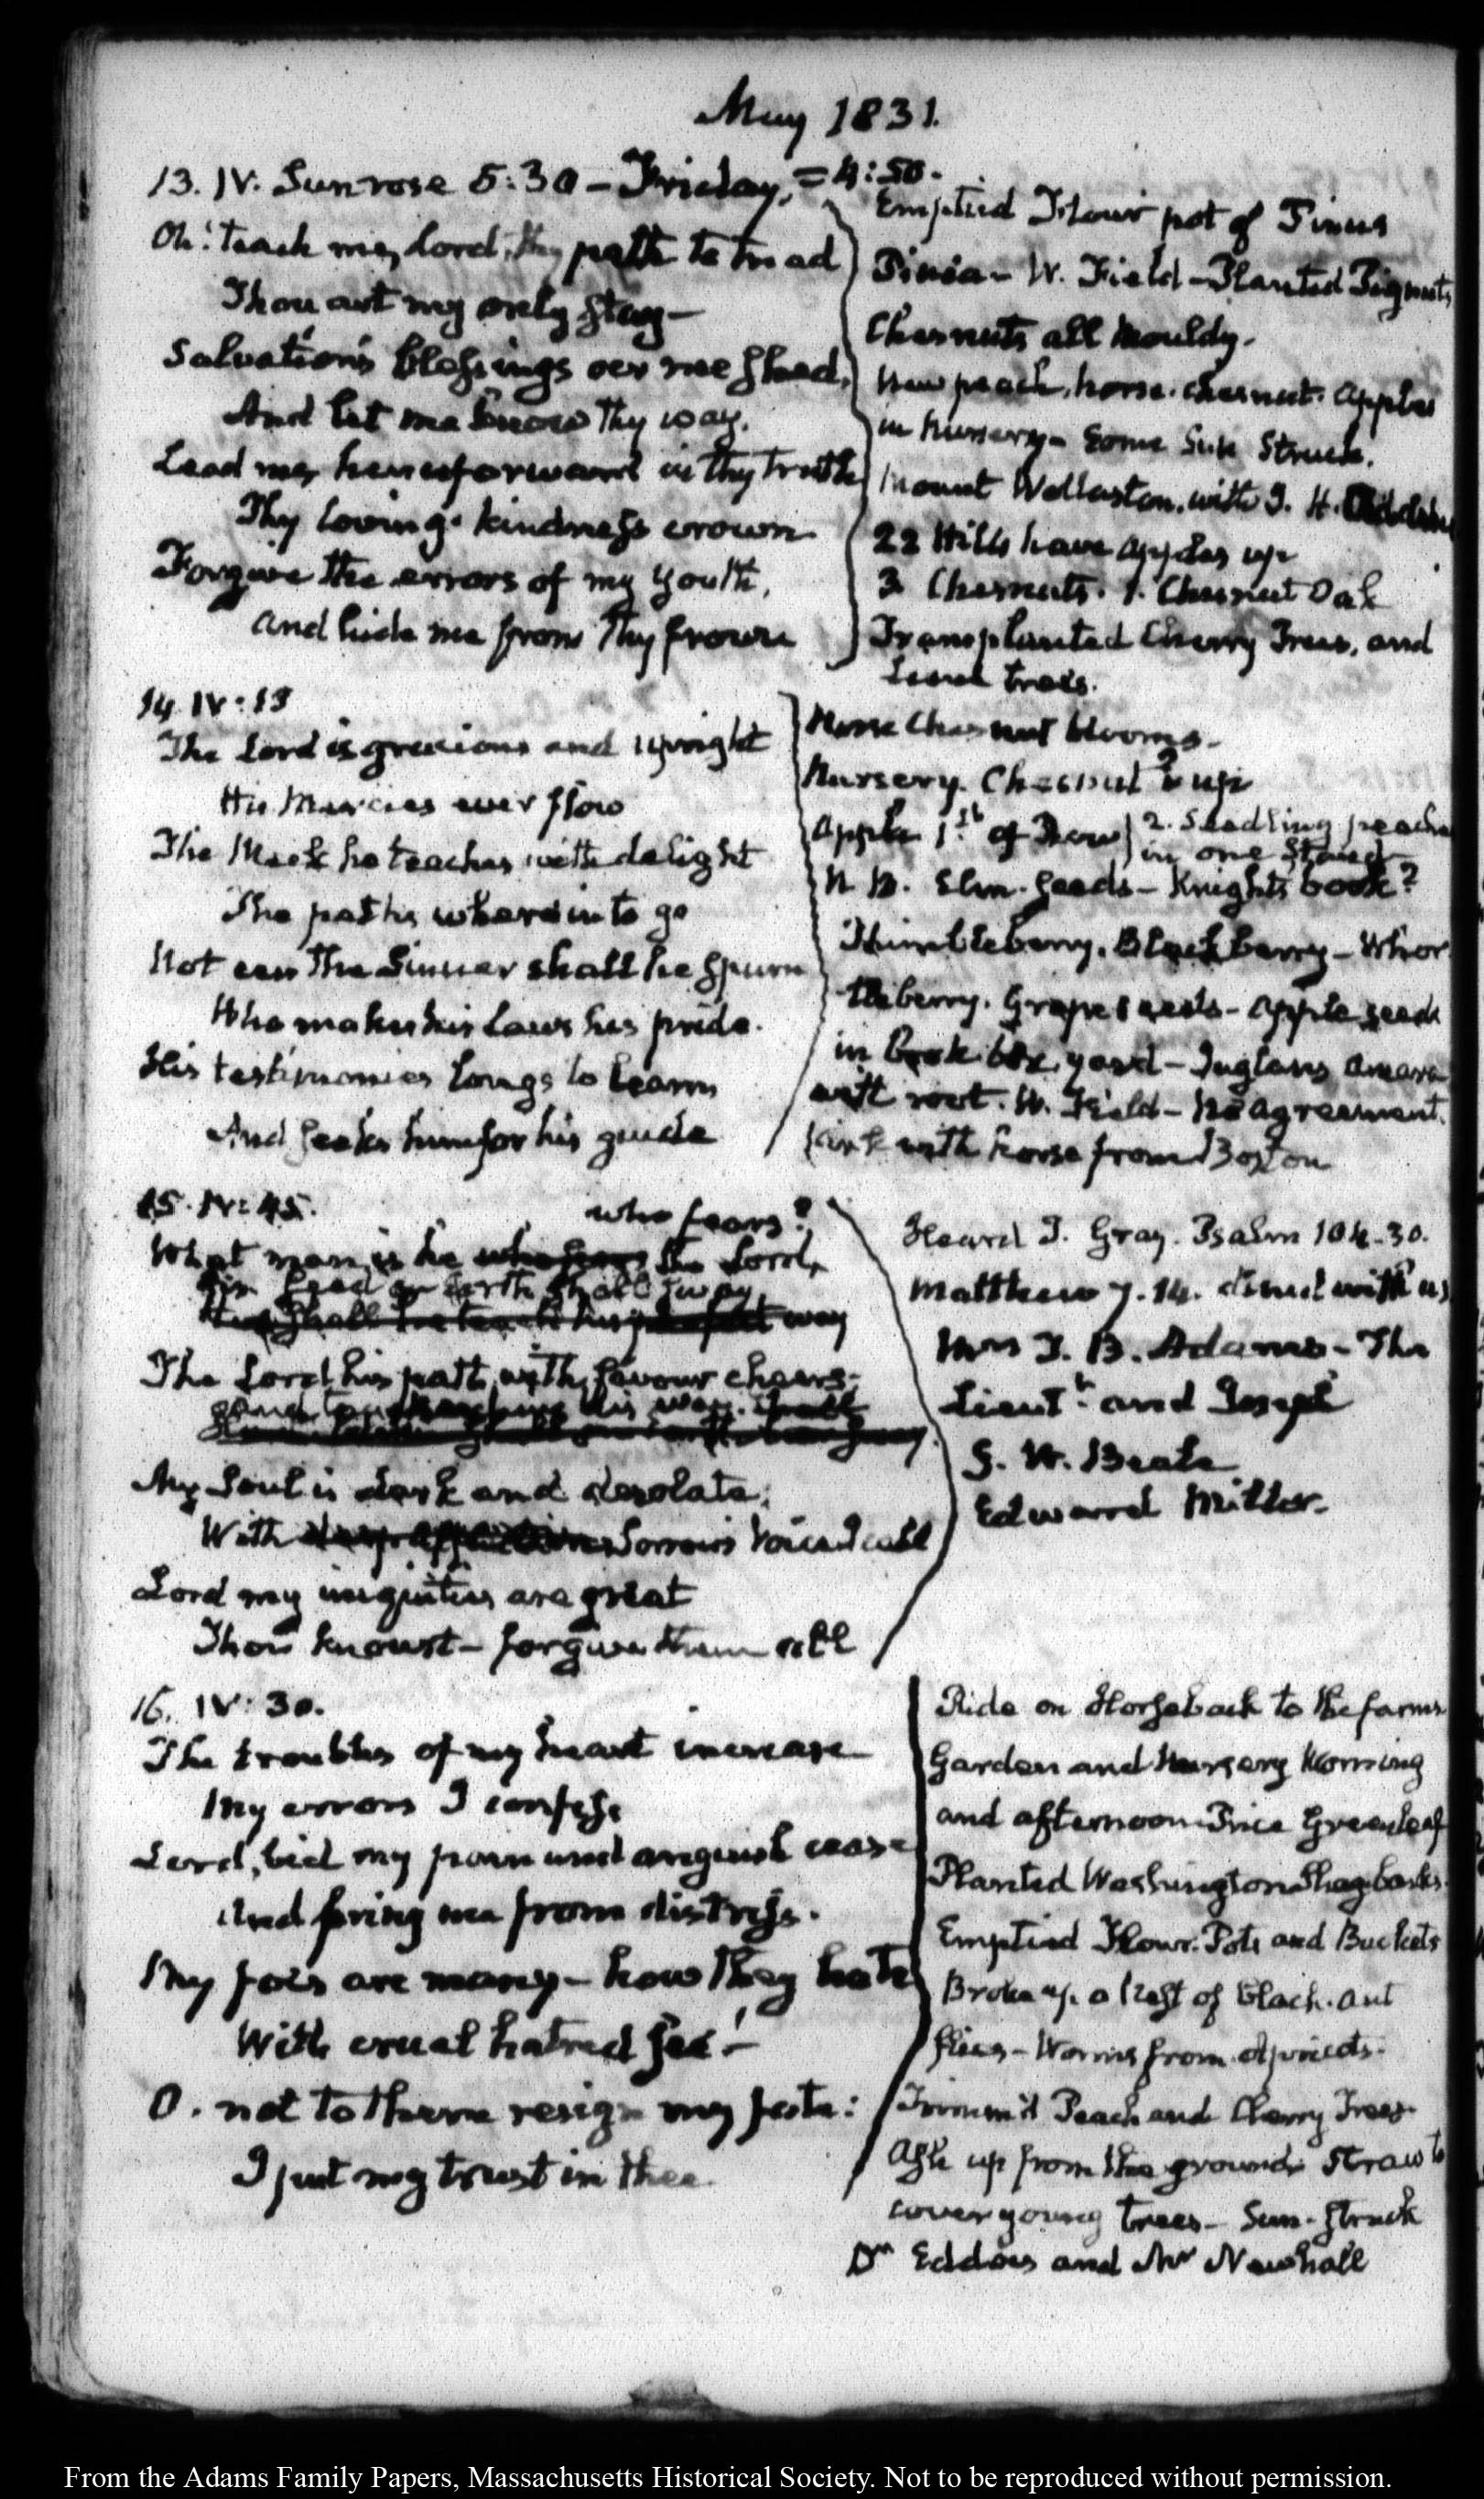 May 1831.
13. IV. Sunrose 5:30 – Friday, = 4:50.
Oh! teach me, Lord, thy path to tread
Thou art my only stay –
Salvation's blessings oer me shed,
And let me know Thy way.
Lead me, henceforward in thy truth
Thy loving kindness crown
Forgive the errors of my youth,
and hide me from Thy frown
Emptied Flour pot of Pinus
Pinea – W. Field – Planted Pignuts
Chesnuts all mouldy.
New peach, horse chesnut. Apples
in nursery – Some Sun Struck.
Mount Wollaston, with I. H.
22 Hills have apples up
3 Chesnuts. 1. Chesnut Oak
Transplanted Cherry Trees, and
trees.
14. IV: 15
The Lord is gracious and upright
His Mercies ever flow
The Meek he teaches with delight
The paths wherein to go
Not een The Sinner shall he spurn
Who makes his Laws his pride.
His testimonies longs to learn
And seeks him for his guide
Horse Chesnut blooms.
Nursery. Chesnut 2 up
Apple 1st. of Row) 2. Seedling peache
in one
N. B. Elm. Seeds – Knight's book?
Thimbleberry. Blackberry – Whor
tleberry. Grape seeds – Apple seeds
in yard – Juglans Amara
with root. W. Field – No agreement.
with horse from Boston
15. IV: 45.
who fears?
What man is he who fears the Lord,
His seed on earth shall sway
Him shall he teach his way
The Lord his path with favour cheers –
his way.
My Soul is dark and desolate;
With deep affliction Sorrow's voice I call
Lord my iniquities are great
Thou knowst – forgive them all
Heard T. Gray. Psalm 104. 30.
Matthew 7. 14. dined with us
Mrs T. B. Adams – The
Lieut. and Joseph
G. W. Beale
Edward Miller.
16. IV: 30.
The troubles of my heart increase
My errors I confess
Lord, bid my pain and anguish cease
And bring me from distress.
My foes are many – how they hate
With cruel hatred see! –
O. not to them resign my fate:
I put my trust in thee.
Ride on Horseback to the farms
Garden and Nursery Morning
and afternoon. Price Greenleaf
Planted Washington Shagbarks
Emptied Flour. Pots and Buckets
Broke up a Nest of black. ant
flies – Worms from apricots.
Trimm'd Peach and Cherry Trees.
Ash up from the ground. Straw to
cover young trees – Sun-struck
Dr Eddows and Mr Newhall
From the Adams Family Papers, Massachusetts Historical Society. Not to be reproduced without permission.